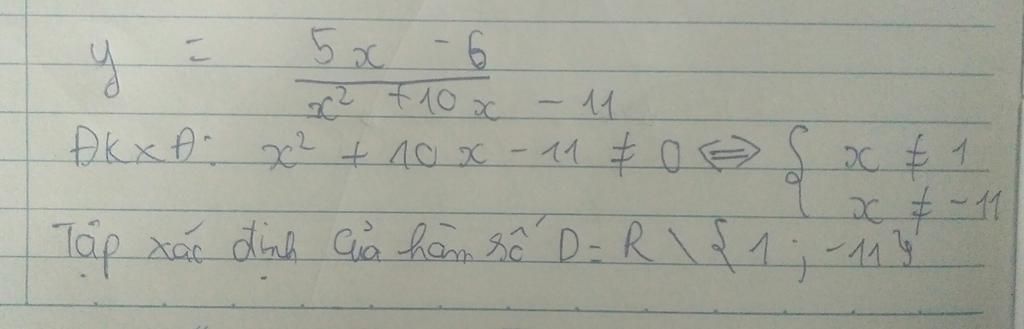 y = (5x - 6)/(x² + 10x - 11)
ĐKXĐ: x² + 10x - 11 ≠ 0 ⇔ { x ≠ 1
x ≠ -11
Tập xác định của hàm số D = R \ { 1 ; -11}